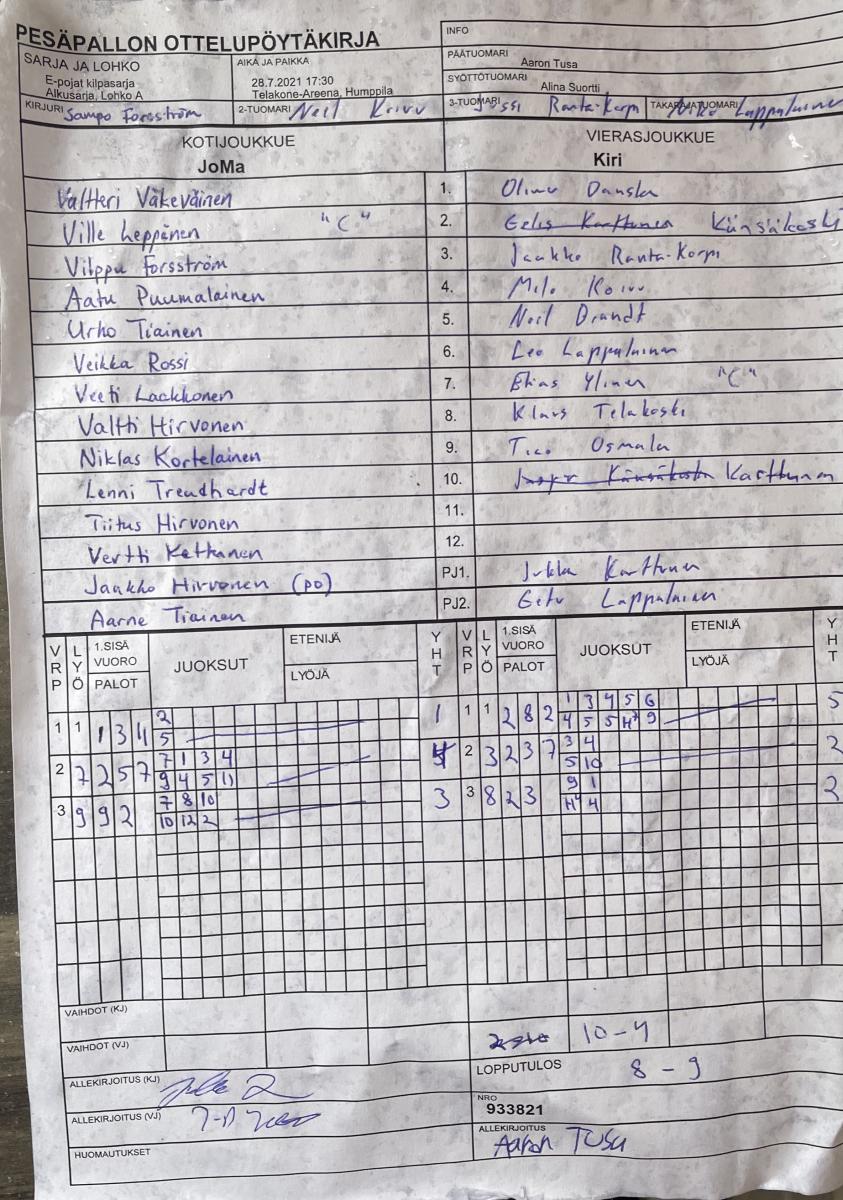 PESÄPALLON OTTELUPÖYTÄKIRJA
INFO
SARJA JA LOHKO
E-pojat kilpasarja
Alkusarja, Lohko A
AIKA JA PAIKKA
28.7.2021 17:30
Telakone-Areena, Humppila
PÄÄTUOMARI
Aaron Tusa
SYÖTTÖTUOMARI
Alina Suortti
KIRJURI Sampo Forsström
2-TUOMARI Neil
3-TUOMARI Jussi Ranta-Korpi
TAKARAJATUOMARI Lappalainen
KOTIJOUKKUE
JoMa
VIERASJOUKKUE
Kiri
Valtteri Väkeväinen 1. Danska
Ville Leppänen "C" 2. Eelis Karttunen Känsäkoski
Vilppu Forsström 3. Jaakko Ranta-Korpi
Aatu Puumalainen 4. Milo Koivu
Urho Tiainen 5. Neil Brandt
Veikka Rossi 6. Leo Lappalainen
Veeti Laakkonen 7. Elias Ylinen "C"
Valtti Hirvonen 8. Klaus Telakoski
Niklas Kortelainen 9. Tico Osmala
Lenni Trendhardt 10. Känsäkoski Karttunen
Tiitus Hirvonen 11.
Vertti Kettunen 12.
Jaakko Hirvonen (po) PJ1. Jukka Karttunen
Aarne Tiainen PJ2. Eetu Lappalainen
VRP LYÖ 1.SISÄ VUORO PALOT JUOKSUT ETENIJÄ LYÖJÄ YHT
VRP LYÖ 1.SISÄ VUORO PALOT JUOKSUT ETENIJÄ LYÖJÄ YHT
2 1 3 4 5 6
1 1 1 3 4 5 1 1 1 2 8 2 4 5 5 H 9 5
7 1 3 4 3 4
2 7 2 5 7 9 4 5 11 4 2 3 2 3 7 5 10 2
7 8 10 9 1
3 9 9 2 10 12 2 3 3 8 2 3 H 4 2
VAIHDOT (KJ)
VAIHDOT (VJ)
10-4
ALLEKIRJOITUS (KJ)
LOPPUTULOS 8 - 9
ALLEKIRJOITUS (VJ)
NRO
933821
HUOMAUTUKSET
ALLEKIRJOITUS
Aaron TUSA